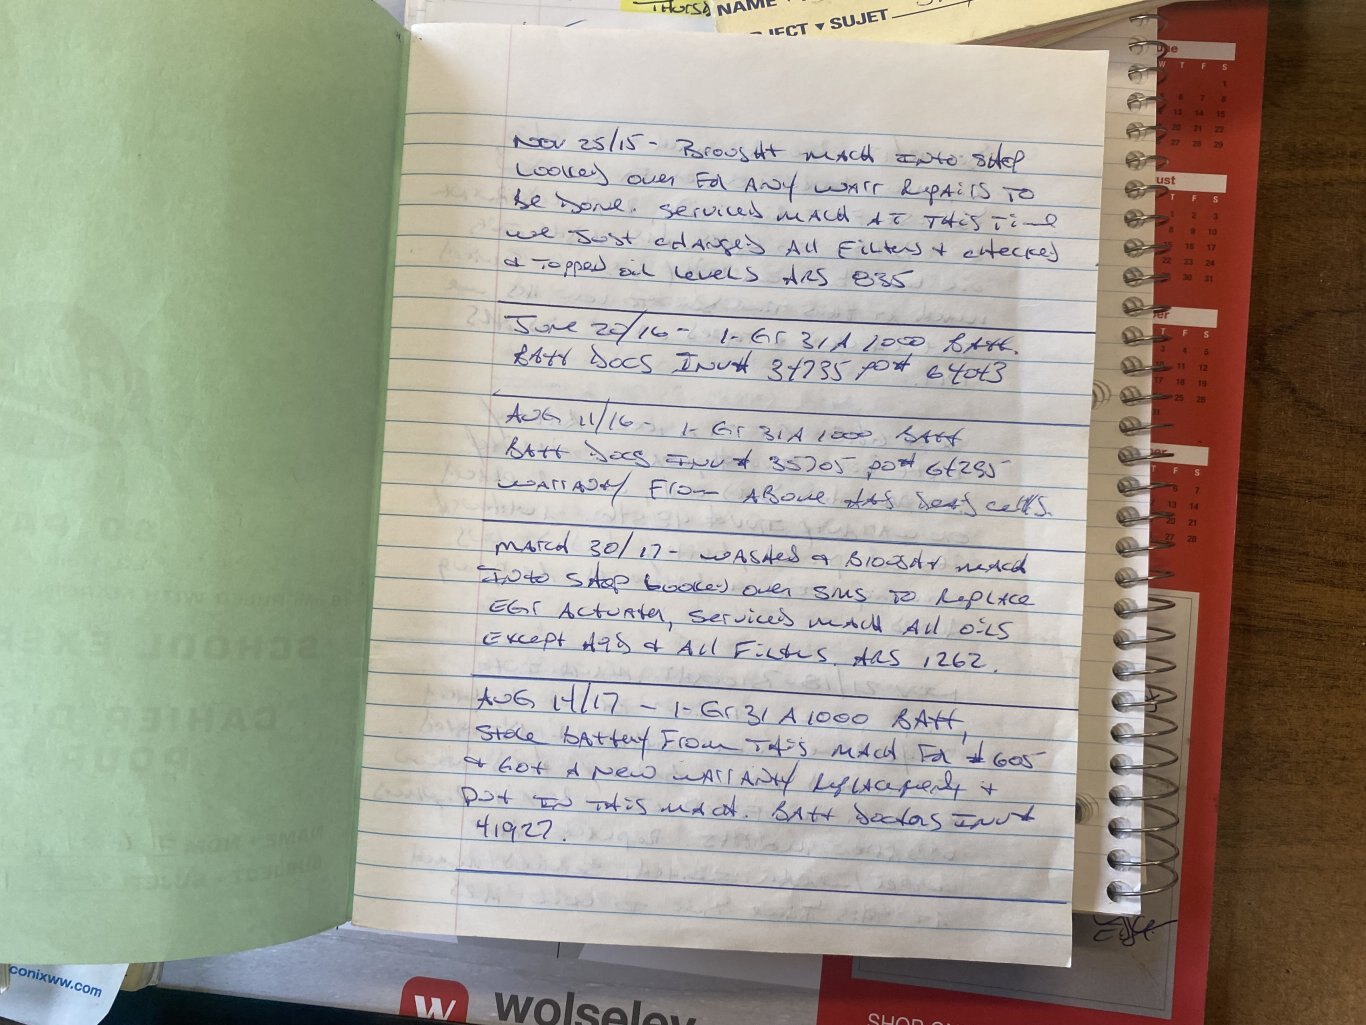 THURSD
NAME
JECT ▾ SUJET
NOV 25/15 - Brought MACH INTO SHOP
Looked over For ANY WARR RepAirs TO
Be Done. Serviced MACH AT THis Time
we JUST CHANged All Filters + checked
+ Topped oil Levels HRS 835
JUNE 20/16 - 1- Gr 31A 1000 BATT.
BATT DOCS INV# 34735 PO# 64043
AUG 11/16 - 1- Gr 31A 1000 BATT
BATT DOCS INV# 35705 PO# 64295
WARRANTY From ABove HAS DeAD cells.
MARCH 30/17 - WASHed + BrougHt MACH
INTO SHOP Looked over SMS TO RePLACe
EGR ActuAter, Serviced MACH All OiLS
Except HYD + All Filters. HRS 1262.
AUG 14/17 - 1- Gr 31A 1000 BATT,
Stole BATTery From THis MACH For #605
+ Got A New WARRANTY RePLAcement +
Put IN THis MACH. BATT Doctors INV#
41927.
ust
W T F S
conixww.com
W
wolseley